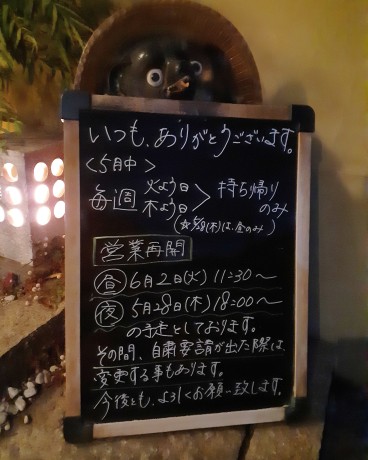 いつも、ありがとうございます。
<5月中>
毎週 火よう日 木よう日 > 持ち帰りのみ
(☆5/28(木)は、昼のみ)
営業再開
昼 6月2日(火) 11:30〜
夜 5月28日(木) 18:00〜
の予定としております。
その間、自粛要請が出た際は、
変更する事もあります。
今後とも、よろしくお願い致します。